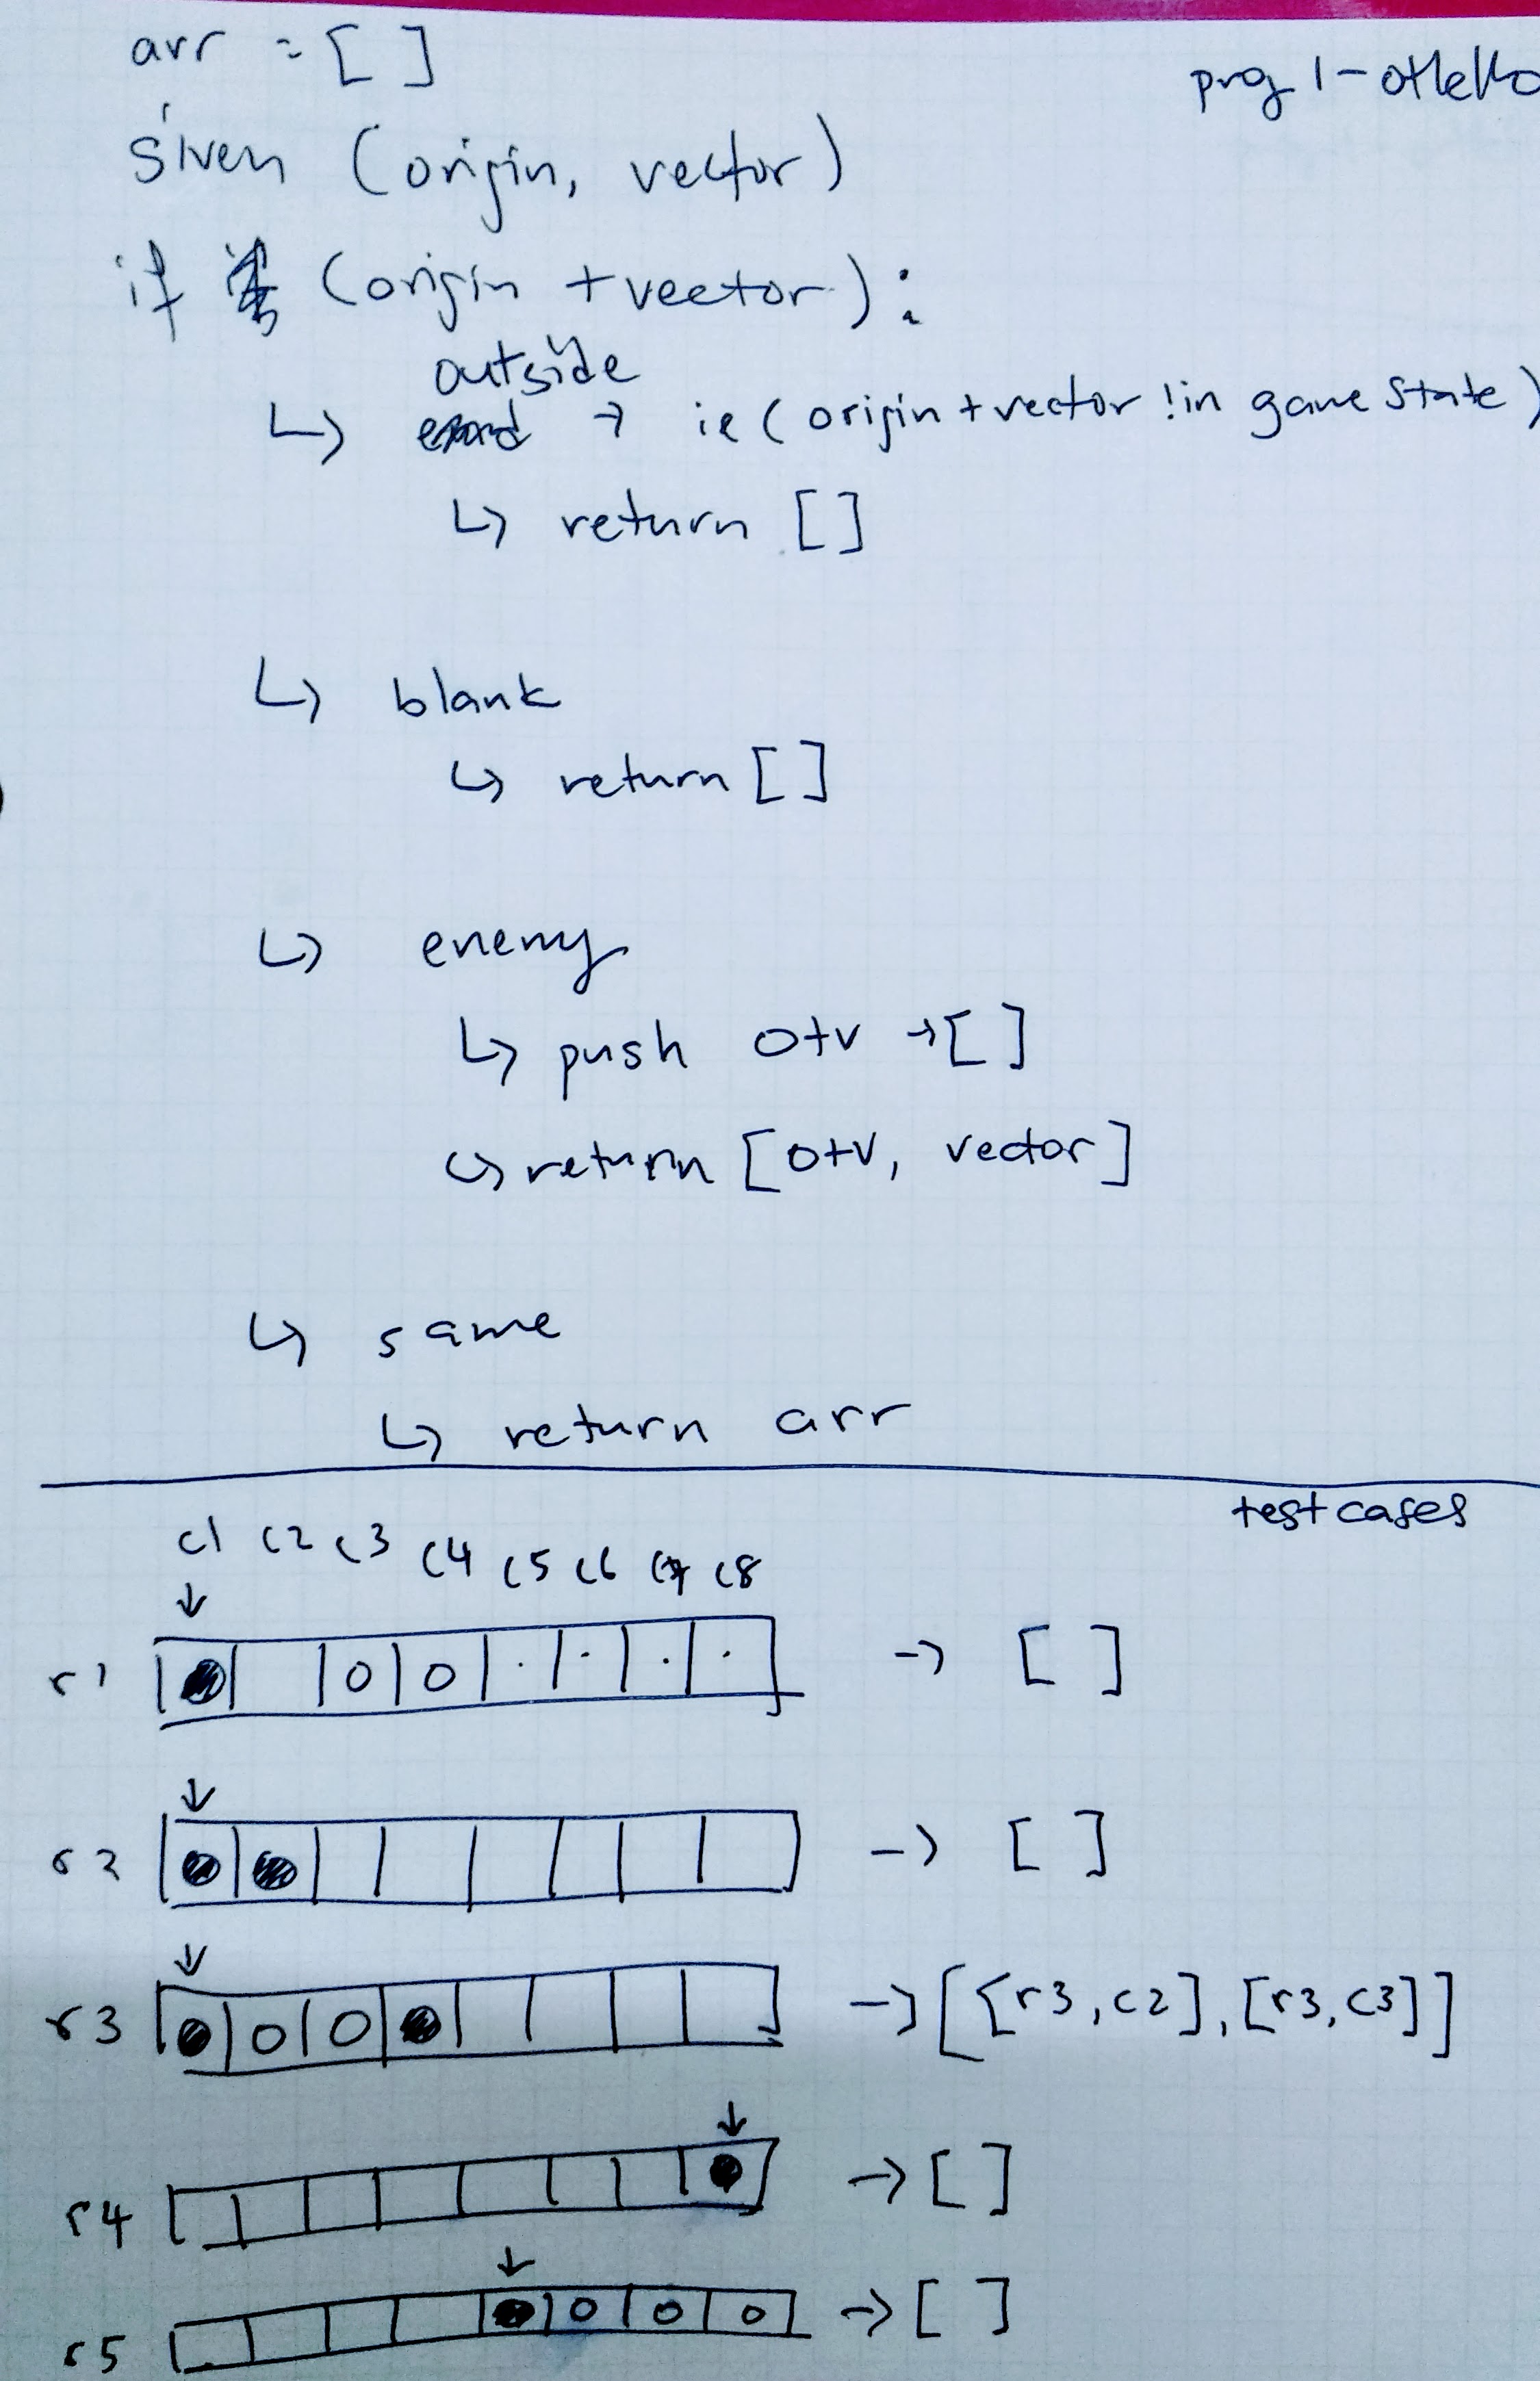 arr = [ ]
prog 1 - othello
given (origin, vector)
if (origin + vector):
outside
↳ → ie (origin + vector !in gameState)
↳ return [ ]
↳ blank
↳ return [ ]
↳ enemy
↳ push o+v → [ ]
↳ return [o+v, vector]
↳ same
↳ return arr
test cases
c1 c2 c3 c4 c5 c6 c7 c8
r1 → [ ]
r2 → [ ]
r3 → [[r3, c2], [r3, c3]]
r4 → [ ]
r5 → [ ]